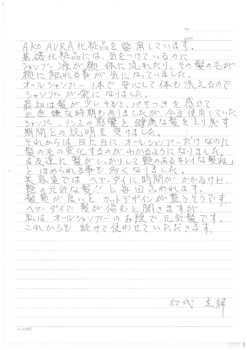 AKO AURA化粧品を愛用しています。
基礎化粧品には気をつけているのに
シャンプー液が顔、体に流れたり、その髪の毛が
肌に触れる事が気になっていました。
オールシャンプー1本で安心して体も洗えるので
シャンプーが楽になりました。
最初は髪が少しキシミ、パサつきを感じて
正直嫌な時期もありましたが、今迄使用していた
シャンプーリンスの影響と健康な髪をとり戻す
期間との説明を受けました。
それからは日に日にオールシャンプーだけなのに
髪の毛の変化するのがわかるようになりました。
お友達に髪がしっかりして艶のあるキレイな髪ね
とほめられる事も多くなりました。
美容室では、ヘアーダイに時間がかかるけど、
艶と元気な髪!!と毎回言われます。
髪質が良いとカットデザインが整うそうです。
ヘアーダイで髪が傷むと聞きますが
私は、オールシャンプーのお陰で元気髪です。
これからも続けて使わせていただきます。
50代 主婦